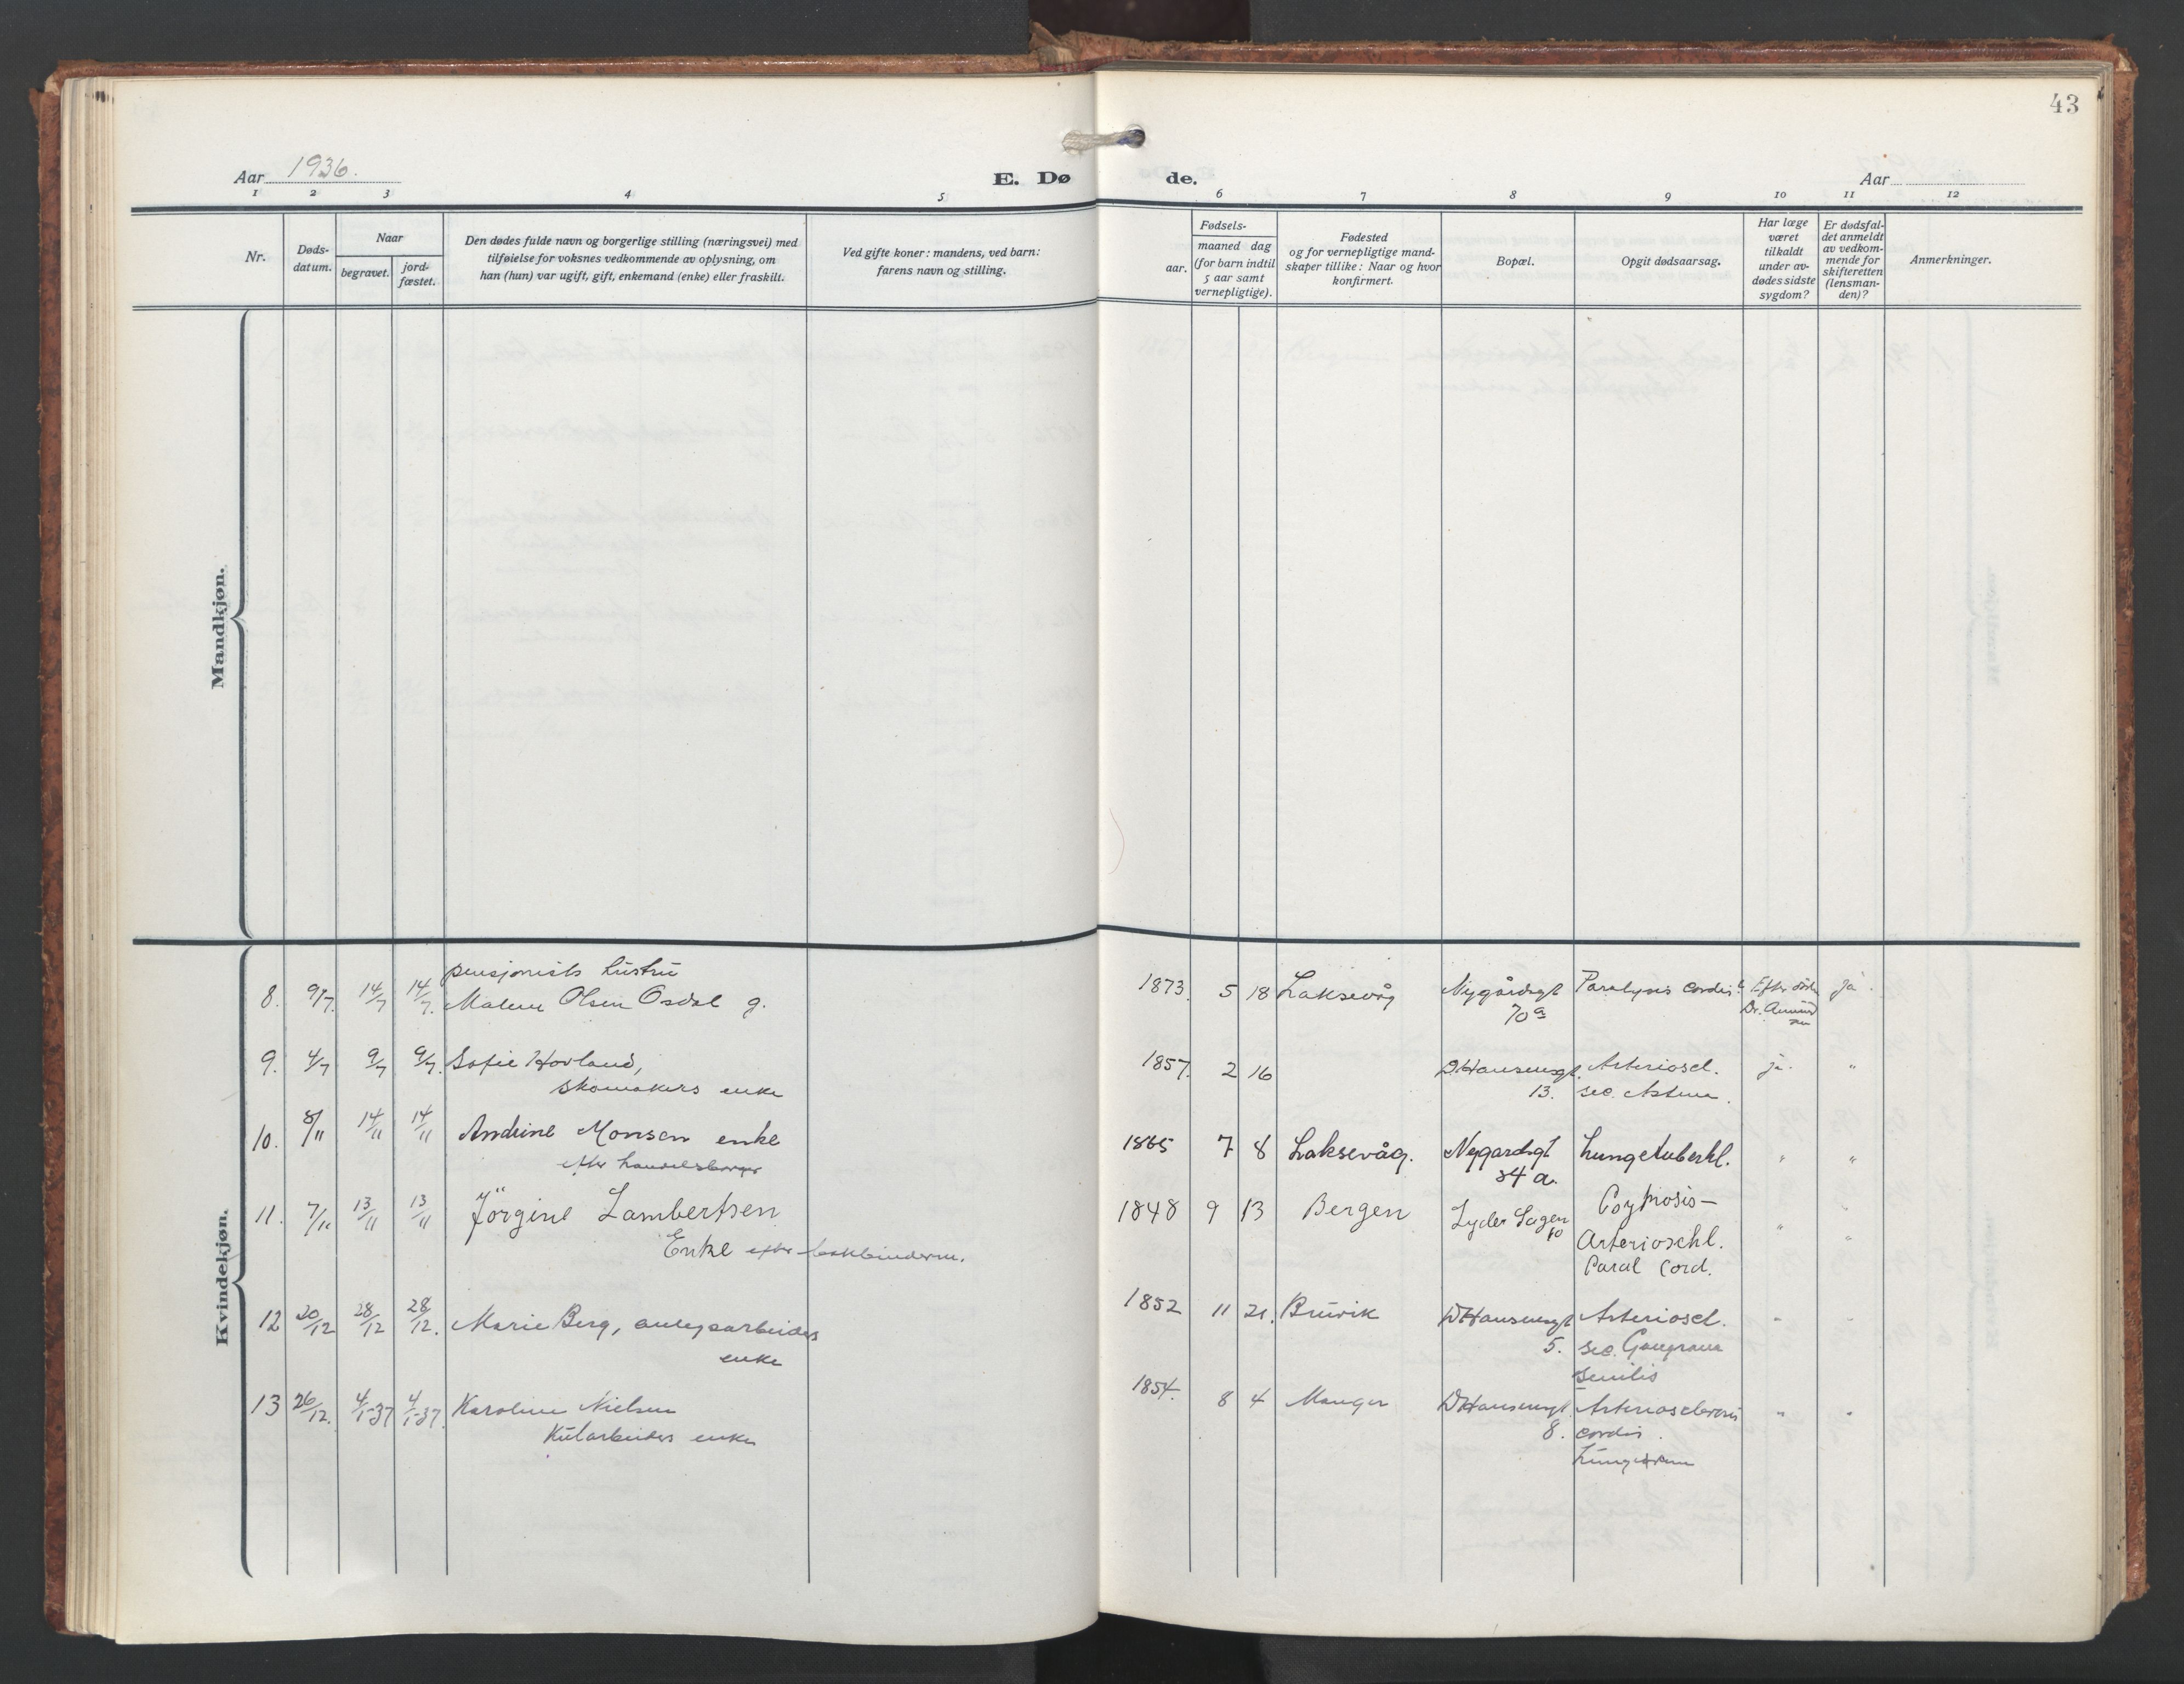 43
Aar 1936.
E. Døde.
Aar
1 2 3 4 5 6 7 8 9 10 11 12
Nr.
Døds-
datum.
Naar
begravet.
jord-
fæstet.
Den dødes fulde navn og borgerlige stilling (næringsvei) med
tilføielse for voksnes vedkommende av oplysning, om
han (hun) var ugift, gift, enkemand (enke) eller fraskilt.
Ved gifte koner: mandens, ved barn:
farens navn og stilling.
Fødsels-
aar.
maaned dag
(for barn indtil
5 aar samt
vernepligtige).
Fødested
og for vernepligtige mand-
skaper tillike: Naar og hvor
konfirmert.
Bopæl.
Opgit dødsaarsag.
Har læge
været
tilkaldt
under av-
dødes sidste
sygdom?
Er dødsfal-
det anmeldt
av vedkom-
mende for
skifteretten
(lensman-
den)?
Anmerkninger.
Mandkjøn.
Kvindekjøn.
pensjonists hustru
8. 9/7. 14/7 14/7. Malene Olsen Osdal g. 1873. 5 18 Laksevåg Nygårdsgt Paralysis cordis? Efter døden ja.
70a Dr. Amund
9. 4/7 9/7 9/7. Sofie Hovland, 1857. 2 16 D.Hansensgt. Arterioscl. ja. "
skomakers enke 13. sec. Astma.
10. 8/11 14/11 14/11 Andrine Monsen enke 1865 7 8 Laksevåg. Nygardsgt Lungetuberkl. " "
efter handelsborger 34 a.
11. 7/11 13/11 13/11 Jörgine Lambertsen 1848 9 13 Bergen Lyder Sagen Coyphosis— " "
Enke efter bokbinderm. 10 Arterioschl.
Paral Cord.
12 20/12 28/12 28/12. Marie Berg, anlegsarbeiders 1852 11 21. Bruvik D.Hansensgt Arterioscl. " "
enke 5. sec. Gangræna
senilis
13 26/12. 4/1-37 4/1-37. Karoline Nielsen 1854. 8 4 Manger D.Hansensgt. Arteriosclerosis " "
Kularbeiders enke 8. cordis.